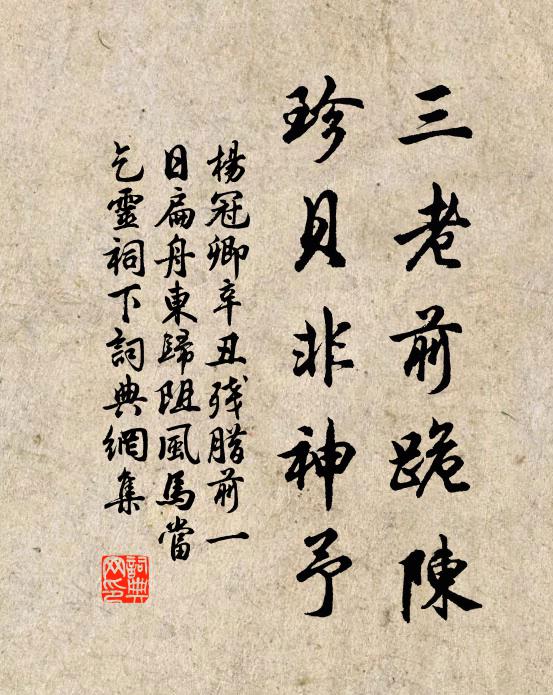 三老前跪陳
珍貝非神予
楊冠卿辛丑残腊前一
日扁舟東歸阻風馬當
乞靈祠下詞典網集
詞典网印